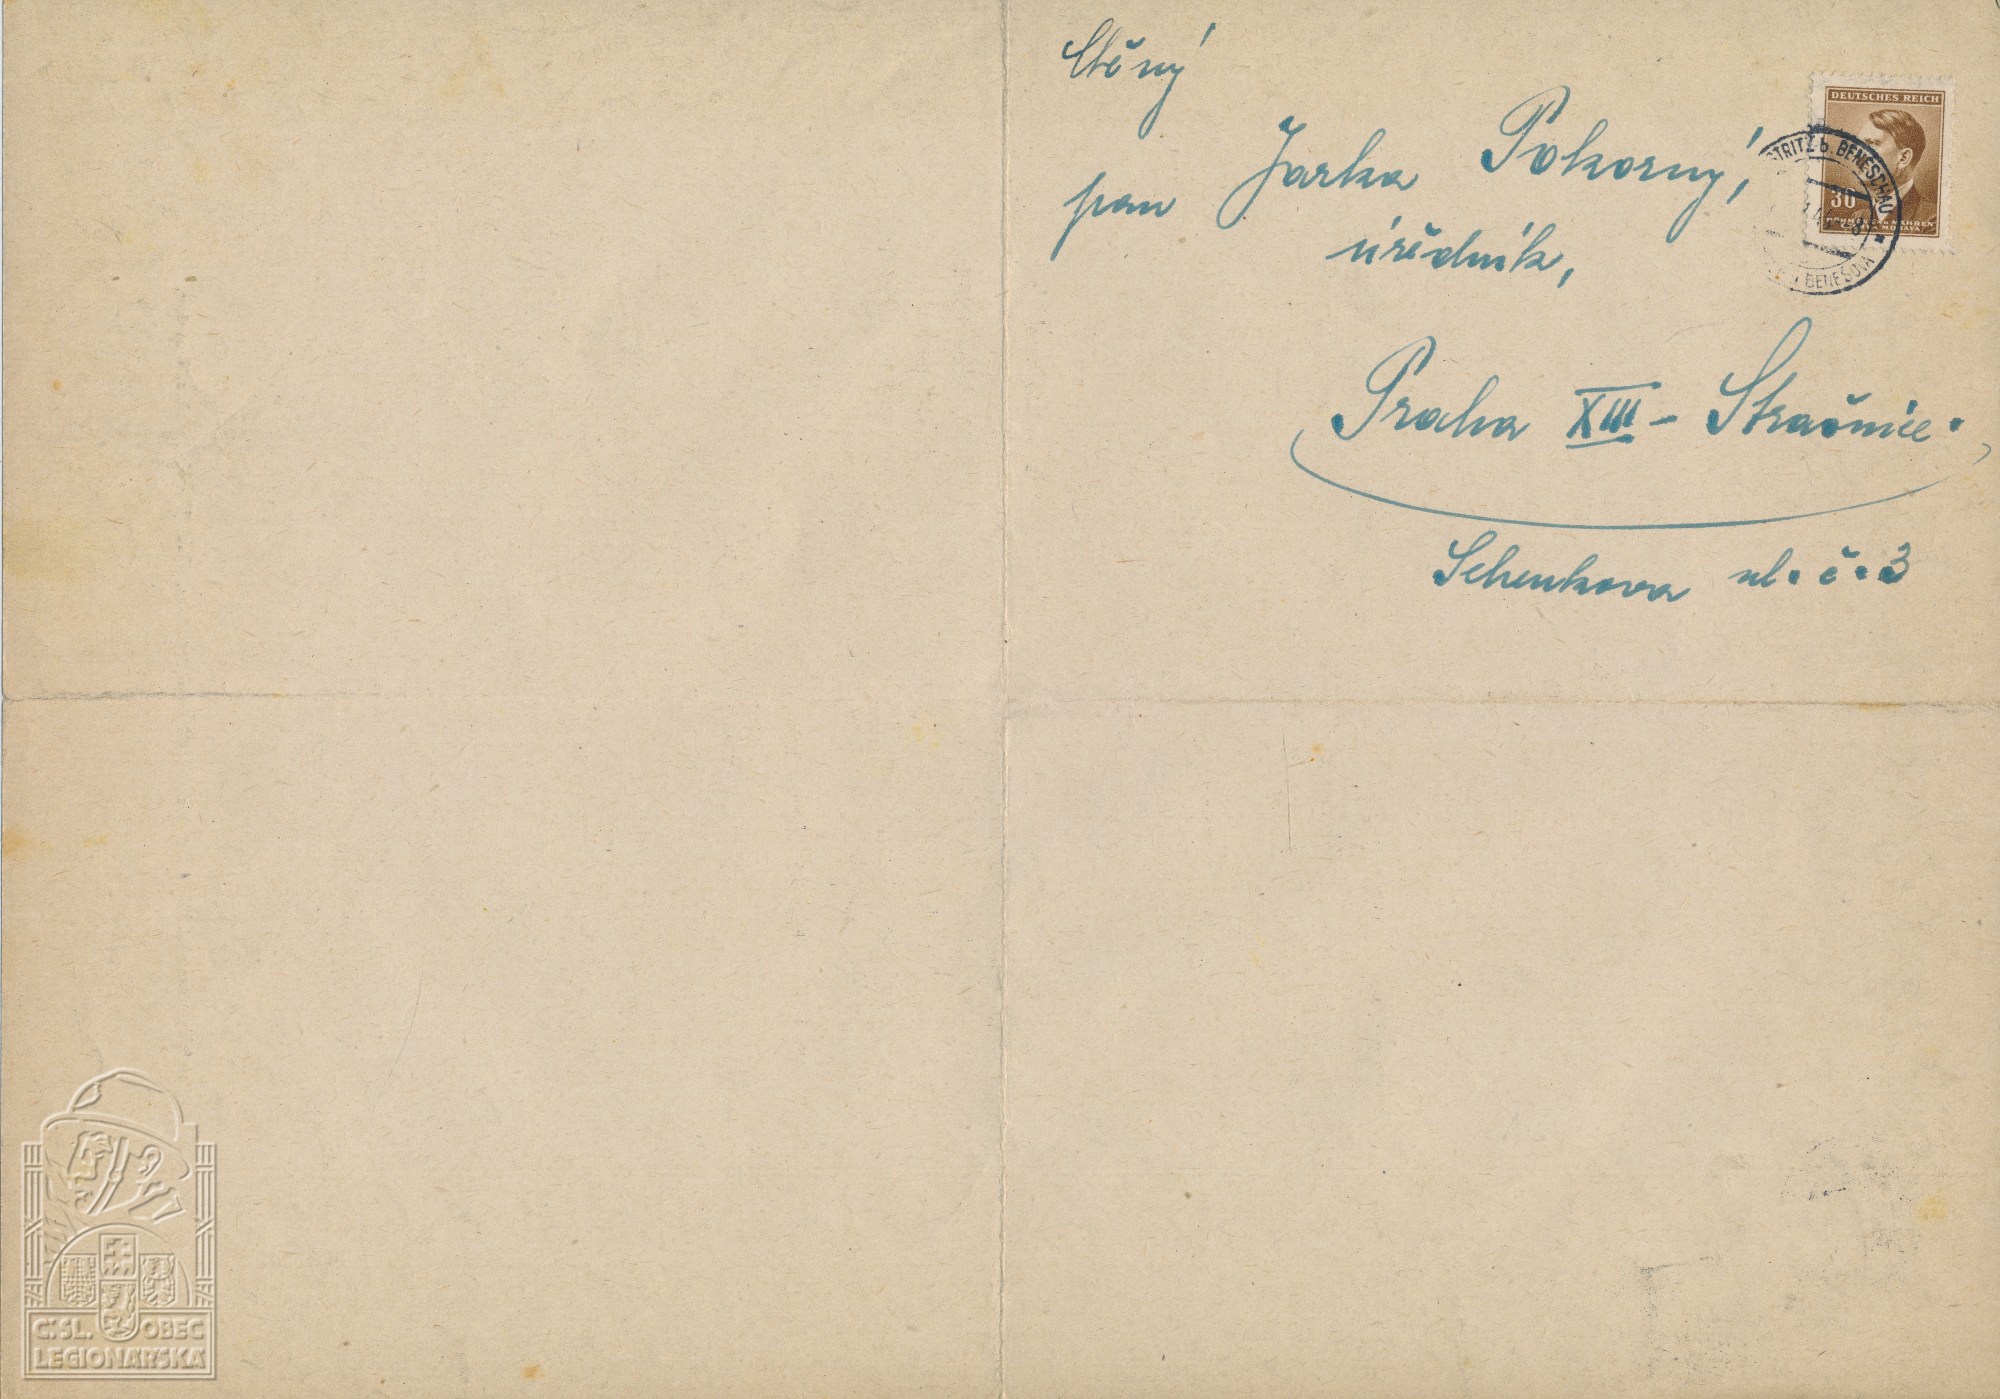 Ctěný
pan Jarka Pokorný,
úředník,
Praha XIII - Strašnice.
Schenkova ul. č. 3
DEUTSCHES REICH
30
BÖHMEN U. MÄHREN
ČECHY A MORAVA
STRITZ b. BENESCHAU
BENEŠOVA
Č.SL. OBEC
LEGIONÁŘSKÁ